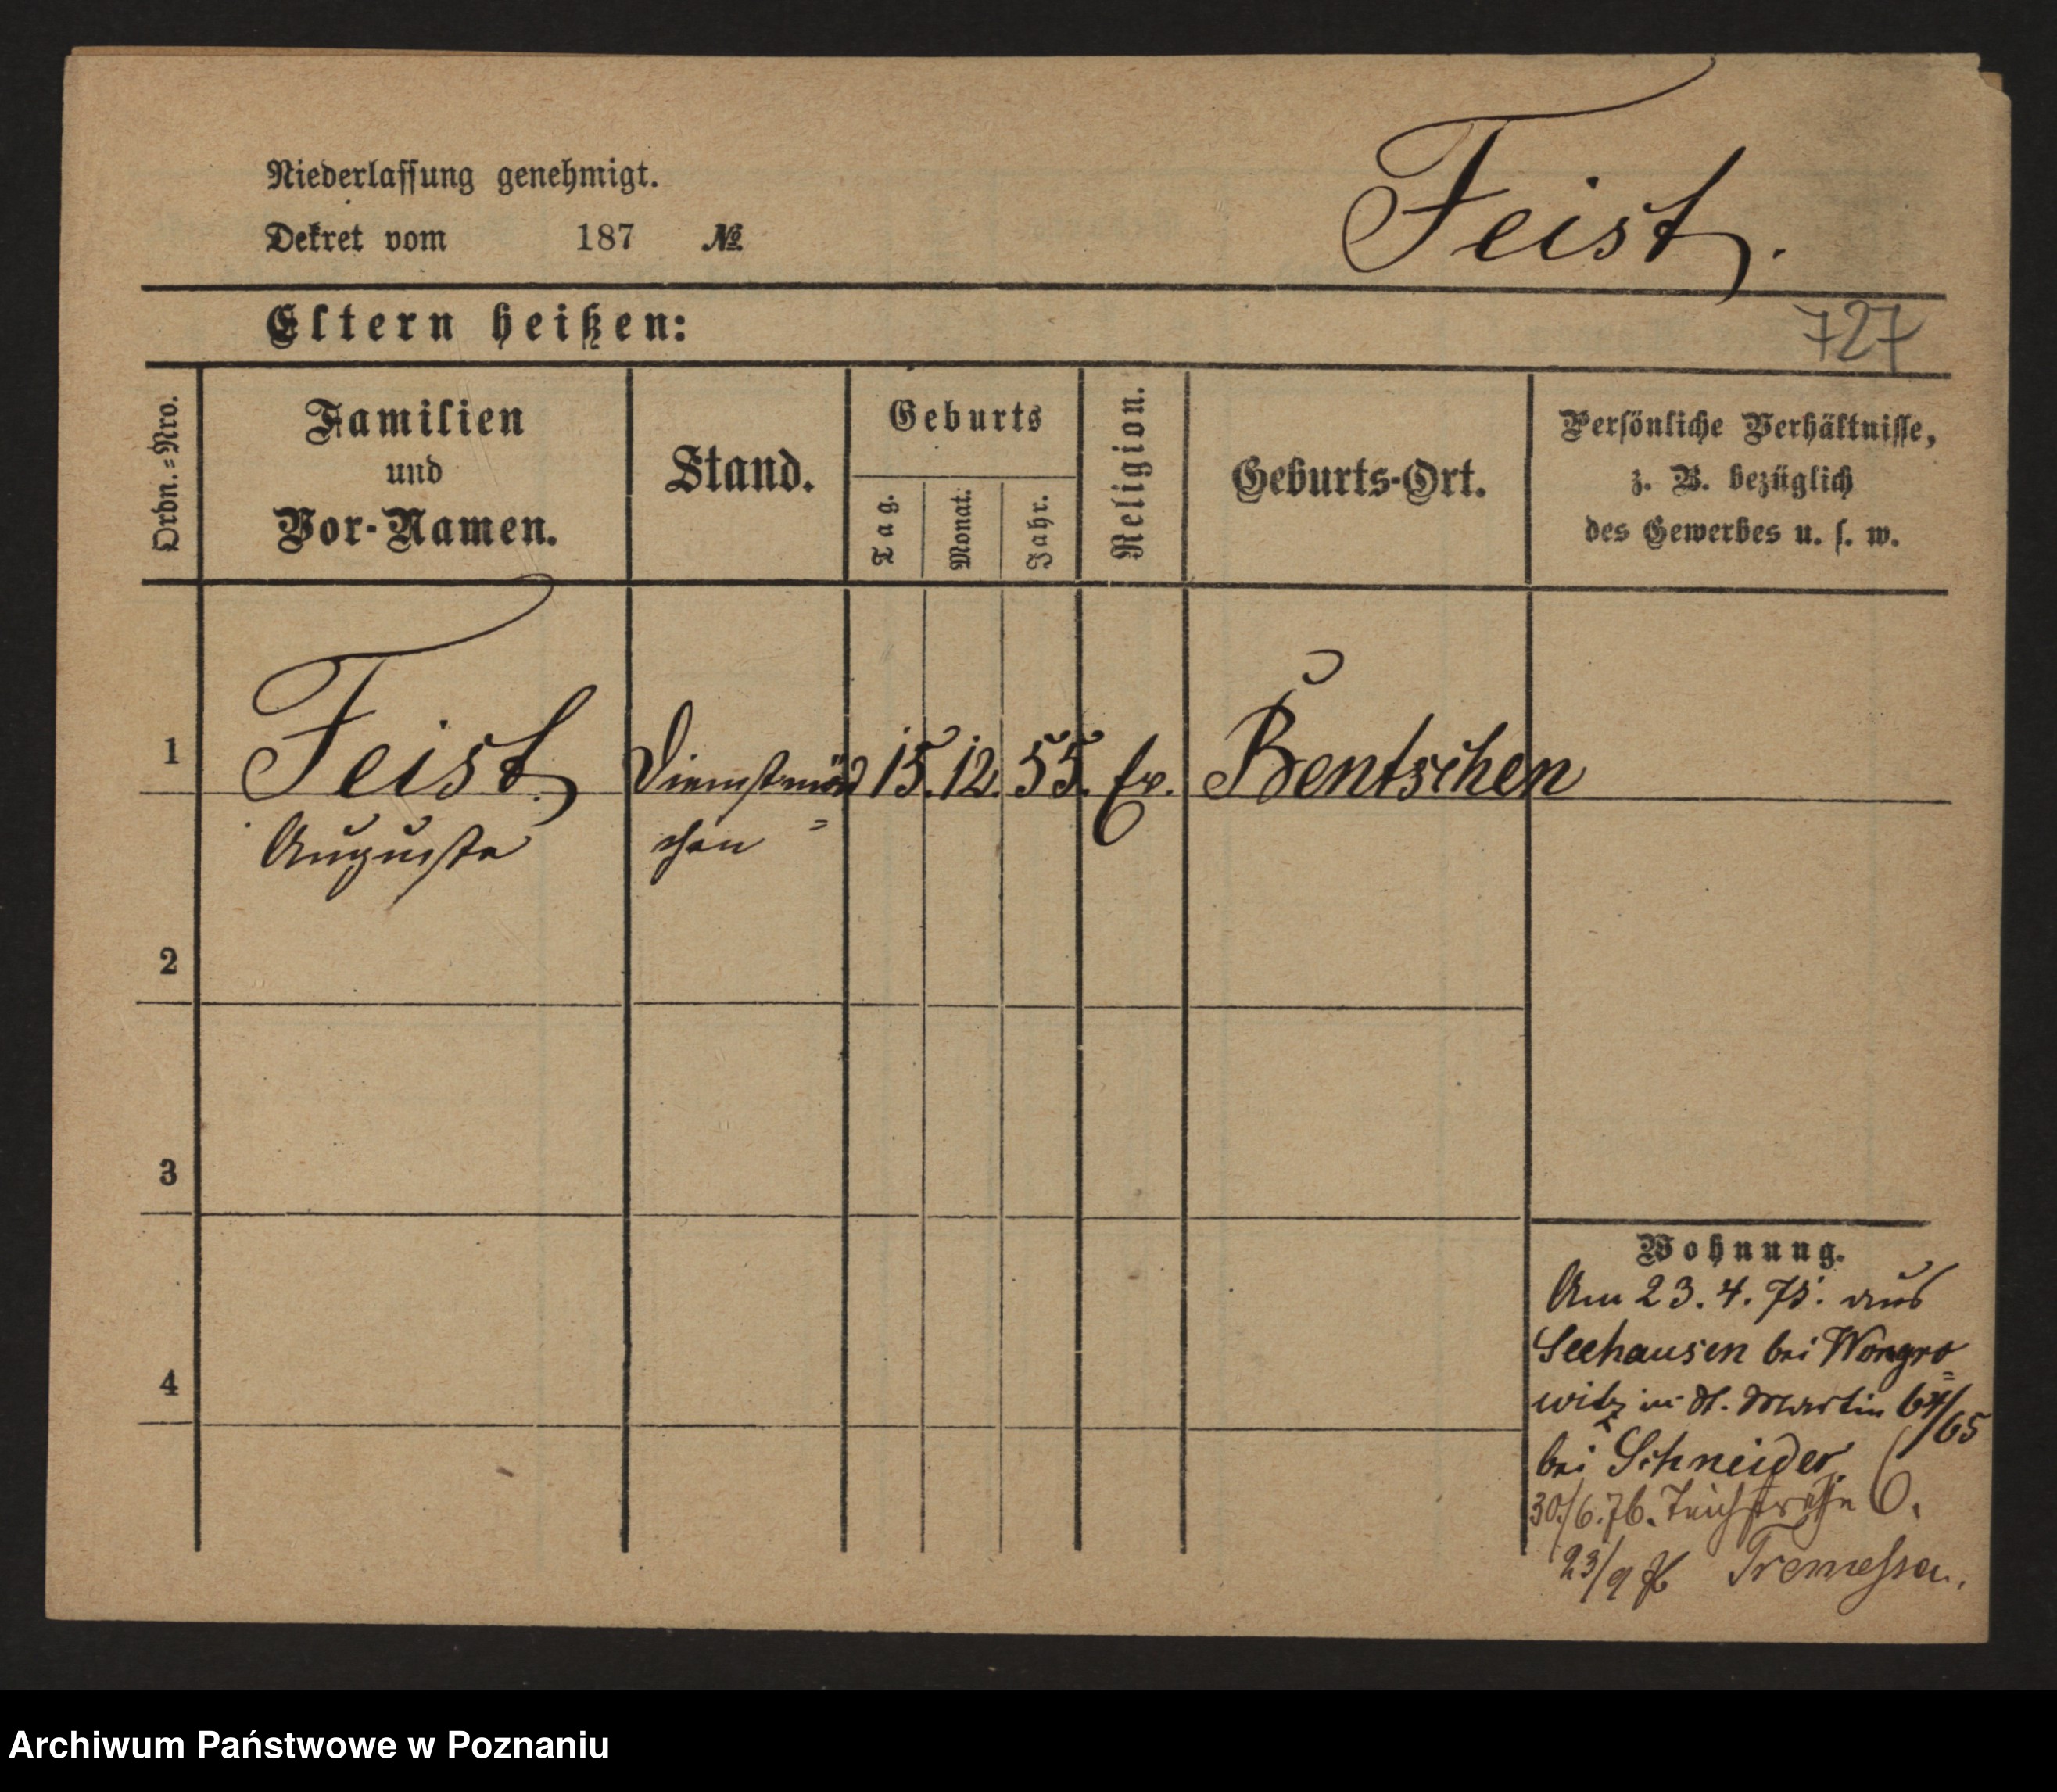 Niederlassung genehmigt.
Dekret vom 187 №
Feist.
Eltern heißen:
727
Ordn.=Nro.
Familien
und
Vor-Namen.
Stand.
Geburts
Tag.
Monat.
Jahr.
Religion.
Geburts-Ort.
Persönliche Verhältnisse,
z. B. bezüglich
des Gewerbes u. s. w.
1 Feist. Dienstmäd 15. 12. 55. Ev. Bentschen
Auguste =
chen
2
3
4
Wohnung.
Am 23. 4. 75. aus
Seehausen bei Wongro=
witz in St. Martin 64/65
bei Schneider.
30./6.76. Teichstraße 6.
23/9 76 Tremessen.
Archiwum Państwowe w Poznaniu